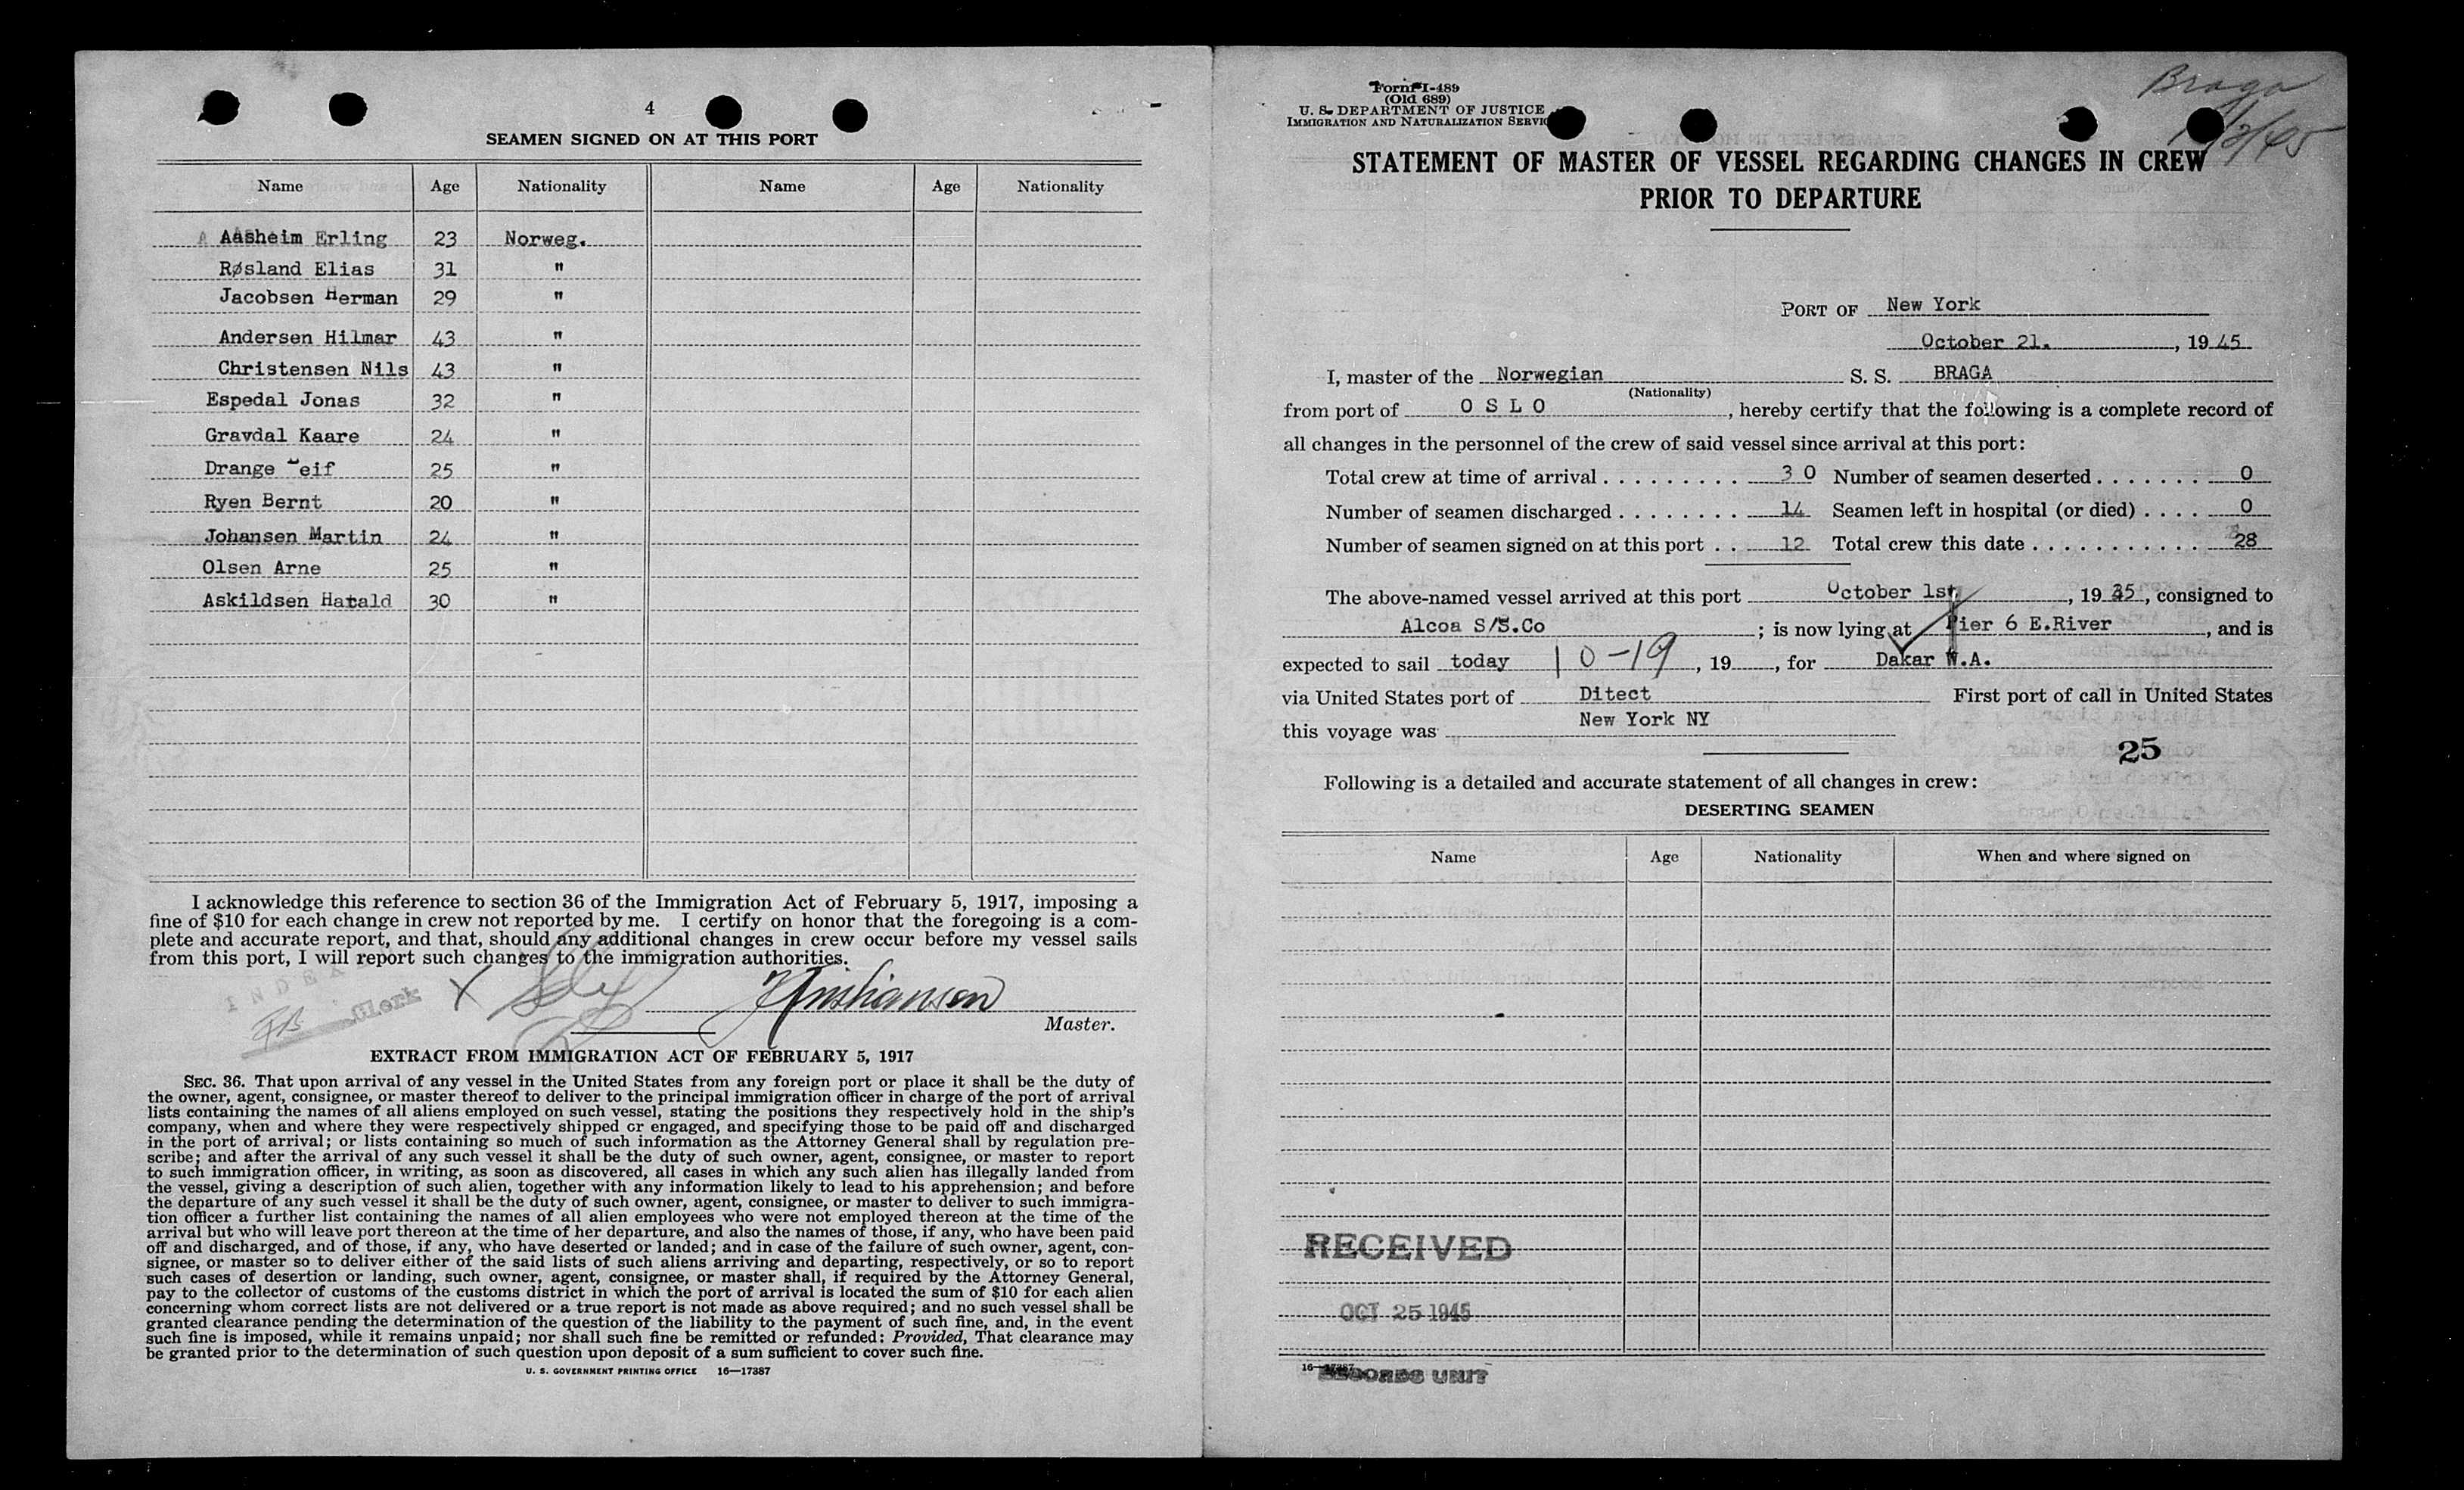 4
SEAMEN SIGNED ON AT THIS PORT
Name Age Nationality Name Age Nationality
Aasheim Erling 23 Norweg.
Røsland Elias 31 "
Jacobsen Herman 29 "
Andersen Hilmar 43 "
Christensen Nils 43 "
Espedal Jonas 32 "
Gravdal Kaare 24 "
Drange Leif 25 "
Ryen Bernt 20 "
Johansen Martin 24 "
Olsen Arne 25 "
Askildsen Harald 30 "
I acknowledge this reference to section 36 of the Immigration Act of February 5, 1917, imposing a
fine of $10 for each change in crew not reported by me. I certify on honor that the foregoing is a com-
plete and accurate report, and that, should any additional changes in crew occur before my vessel sails
from this port, I will report such changes to the immigration authorities.
Clerk
X
Master.
EXTRACT FROM IMMIGRATION ACT OF FEBRUARY 5, 1917
SEC. 36. That upon arrival of any vessel in the United States from any foreign port or place it shall be the duty of
the owner, agent, consignee, or master thereof to deliver to the principal immigration officer in charge of the port of arrival
lists containing the names of all aliens employed on such vessel, stating the positions they respectively hold in the ship's
company, when and where they were respectively shipped or engaged, and specifying those to be paid off and discharged
in the port of arrival; or lists containing so much of such information as the Attorney General shall by regulation pre-
scribe; and after the arrival of any such vessel it shall be the duty of such owner, agent, consignee, or master to report
to such immigration officer, in writing, as soon as discovered, all cases in which any such alien has illegally landed from
the vessel, giving a description of such alien, together with any information likely to lead to his apprehension; and before
the departure of any such vessel it shall be the duty of such owner, agent, consignee, or master to deliver to such immigra-
tion officer a further list containing the names of all alien employees who were not employed thereon at the time of the
arrival but who will leave port thereon at the time of her departure, and also the names of those, if any, who have been paid
off and discharged, and of those, if any, who have deserted or landed; and in case of the failure of such owner, agent, con-
signee, or master so to deliver either of the said lists of such aliens arriving and departing, respectively, or so to report
such cases of desertion or landing, such owner, agent, consignee, or master shall, if required by the Attorney General,
pay to the collector of customs of the customs district in which the port of arrival is located the sum of $10 for each alien
concerning whom correct lists are not delivered or a true report is not made as above required; and no such vessel shall be
granted clearance pending the determination of the question of the liability to the payment of such fine, and, in the event
such fine is imposed, while it remains unpaid; nor shall such fine be remitted or refunded: Provided, That clearance may
be granted prior to the determination of such question upon deposit of a sum sufficient to cover such fine.
U. S. GOVERNMENT PRINTING OFFICE 16—17387
Braga
Form I-489
(Old 689)
U. S. DEPARTMENT OF JUSTICE
IMMIGRATION AND NATURALIZATION SERVIC
STATEMENT OF MASTER OF VESSEL REGARDING CHANGES IN CREW
PRIOR TO DEPARTURE
PORT OF New York
October 21. , 19 45
I, master of the Norwegian S. S. BRAGA
(Nationality)
from port of O S L O , hereby certify that the following is a complete record of
all changes in the personnel of the crew of said vessel since arrival at this port:
Total crew at time of arrival . . . . . . . . . 3 0 Number of seamen deserted . . . . . . . 0
Number of seamen discharged . . . . . . . . 14 Seamen left in hospital (or died) . . . . 0
Number of seamen signed on at this port . . 12 Total crew this date . . . . . . . . . . . 28
The above-named vessel arrived at this port October 1st. , 19 45 , consigned to
Alcoa S/S.Co ; is now lying at Pier 6 E.River , and is
expected to sail today 10-19 , 19 , for Dakar W.A.
via United States port of Ditect First port of call in United States
this voyage was New York NY
25
Following is a detailed and accurate statement of all changes in crew:
DESERTING SEAMEN
Name Age Nationality When and where signed on
RECEIVED
OCT 25 1945
RECORDS UNIT